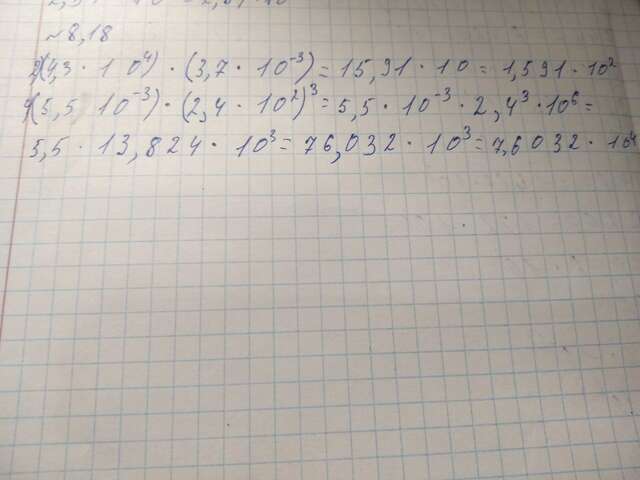 ~8,18
2) (4,3 · 10⁴) · (3,7 · 10⁻³) = 15,91 · 10 = 1,591 · 10²
4) (5,5 10⁻³) · (2,4 · 10²)³ = 5,5 · 10⁻³ · 2,4³ · 10⁶ =
5,5 · 13,824 · 10³ = 76,032 · 10³ = 7,6032 · 10⁴